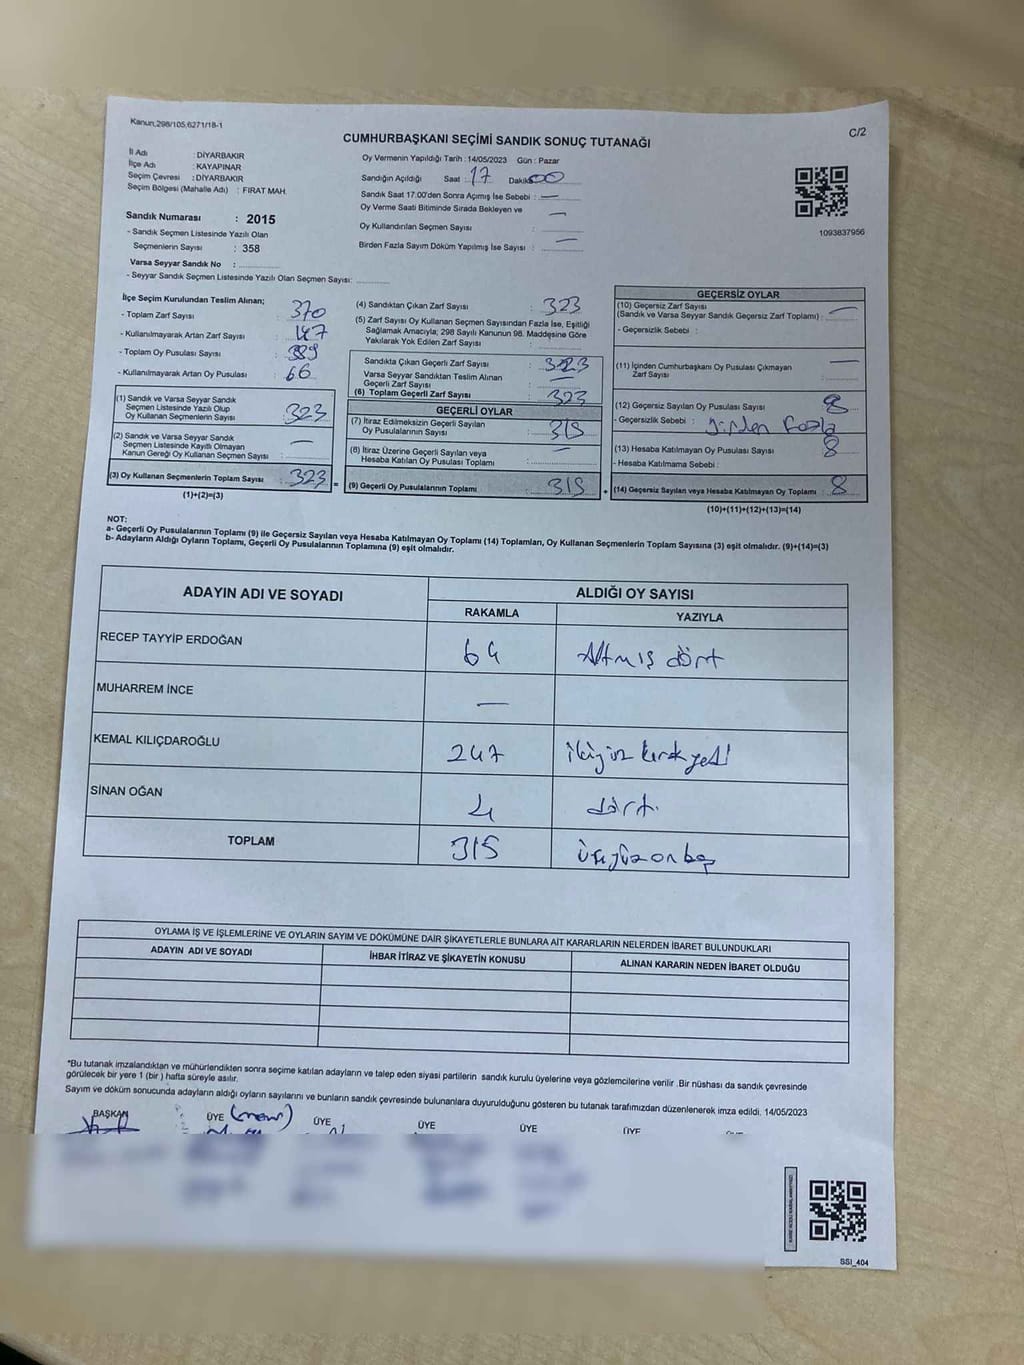 Kanun,298/105,6271/18-1
C/2
CUMHURBAŞKANI SEÇİMİ SANDIK SONUÇ TUTANAĞI
İl Adı : DİYARBAKIR
İlçe Adı : KAYAPINAR
Seçim Çevresi : DİYARBAKIR
Seçim Bölgesi (Mahalle Adı) : FIRAT MAH.
Sandık Numarası : 2015
- Sandık Seçmen Listesinde Yazılı Olan
Seçmenlerin Sayısı : 358
Varsa Seyyar Sandık No :
- Seyyar Sandık Listesinde Yazılı Olan Seçmen Sayısı:
Oy Vermenin Yapıldığı Tarih : 14/05/2023 Gün : Pazar
Sandığın Açıldığı Saat : 17 Dakika: 00
Sandık Saat 17:00'den Sonra Açımış İse Sebebi : —
Oy Verme Saati Bitiminde Sırada Bekleyen ve —
Oy Kullandırılan Seçmen Sayısı :
Birden Fazla Sayım Döküm Yapılmış İse Sayısı : —
1093837956
İlçe Seçim Kurulundan Teslim Alınan;
- Toplam Zarf Sayısı : 370
- Kullanılmayarak Artan Zarf Sayısı :
- Toplam Oy Pusulası Sayısı : 389
- Kullanılmayarak Artan Oy Pusulası : 66
(1) Sandık ve Varsa Seyyar Sandık
Seçmen Listesinde Yazılı Olup
Oy Kullanan Seçmenlerin Sayısı : 323
(2) Sandık ve Varsa Seyyar Sandık
Seçmen Listesinde Kayıtlı Olmayan
Kanun Gereği Oy Kullanan Seçmen Sayısı : —
(3) Oy Kullanan Seçmenlerin Toplam Sayısı : 323 =
(1)+(2)=(3)
(4) Sandıktan Çıkan Zarf Sayısı : 323
(5) Zarf Sayısı Oy Kullanan Seçmen Sayısından Fazla İse, Eşitliği
Sağlamak Amacıyla; 298 Sayılı Kanunun 98. Maddesine Göre
Yakılarak Yok Edilen Zarf Sayısı :
Sandıkta Çıkan Geçerli Zarf Sayısı : 323
Varsa Seyyar Sandıktan Teslim Alınan
Geçerli Zarf Sayısı : —
(6) Toplam Geçerli Zarf Sayısı : 323
GEÇERLİ OYLAR
(7) İtiraz Edilmeksizin Geçerli Sayılan
Oy Pusulalarının Sayısı : 315
(8) İtiraz Üzerine Geçerli Sayılan veya
Hesaba Katılan Oy Pusulası Toplamı : —
(9) Geçerli Oy Pusulalarının Toplamı : 315 +
GEÇERSİZ OYLAR
(10) Geçersiz Zarf Sayısı
(Sandık ve Varsa Seyyar Sandık Geçersiz Zarf Toplamı) : —
- Geçersizlik Sebebi :
(11) İçinden Cumhurbaşkanı Oy Pusulası Çıkmayan
Zarf Sayısı : —
(12) Geçersiz Sayılan Oy Pusulası Sayısı : 8
- Geçersizlik Sebebi : birden fazla
(13) Hesaba Katılmayan Oy Pusulası Sayısı : 8
- Hesaba Katılmama Sebebi :
(14) Geçersiz Sayılan veya Hesaba Katılmayan Oy Toplamı : 8
(10)+(11)+(12)+(13)=(14)
NOT:
a- Geçerli Oy Pusulalarının Toplamı (9) ile Geçersiz Sayılan veya Hesaba Katılmayan Oy Toplamı (14) Toplamları, Oy Kullanan Seçmenlerin Toplam Sayısına (3) eşit olmalıdır. (9)+(14)=(3)
b- Adayların Aldığı Oyların Toplamı, Geçerli Oy Pusulalarının Toplamına (9) eşit olmalıdır.
ADAYIN ADI VE SOYADI
ALDIĞI OY SAYISI
RAKAMLA YAZIYLA
RECEP TAYYİP ERDOĞAN 64 Altmış dört
MUHARREM İNCE —
KEMAL KILIÇDAROĞLU 247 ikiyüz kırk yedi
SİNAN OĞAN 4 dört.
TOPLAM 315 üçyüz on beş
OYLAMA İŞ VE İŞLEMLERİNE VE OYLARIN SAYIM VE DÖKÜMÜNE DAİR ŞİKAYETLERLE BUNLARA AİT KARARLARIN NELERDEN İBARET BULUNDUKLARI
ADAYIN ADI VE SOYADI İHBAR İTİRAZ VE ŞİKAYETİN KONUSU ALINAN KARARIN NEDEN İBARET OLDUĞU
*Bu tutanak imzalandıktan ve mühürlendikten sonra seçime katılan adayların ve talep eden siyasi partilerin sandık kurulu üyelerine veya gözlemcilerine verilir .Bir nüshası da sandık çevresinde
görülecek bir yere 1 (bir ) hafta süreyle asılır.
Sayım ve döküm sonucunda adayların aldığı oyların sayılarını ve bunların sandık çevresinde bulunanlara duyurulduğunu gösteren bu tutanak tarafımızdan düzenlenerek imza edildi. 14/05/2023
BAŞKAN ÜYE (memur) ÜYE ÜYE ÜYE ÜYE
SSI_404